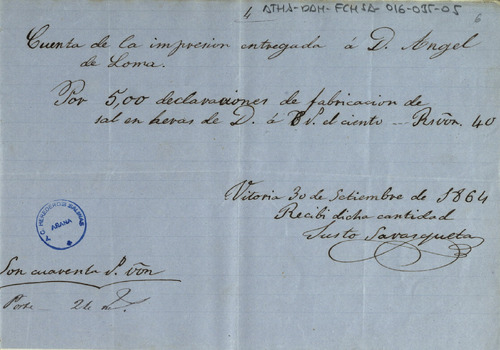 4 ATHA-DAH-FCHSA-016-035-05
6
Cuenta de la impresion entregada á D. Angel
de Loma.
Por 5,00 declaraciones de fabricacion de
sal en heras de D. á 8 rs. el ciento _ Rs von. 40
Vitoria 30 de Setiembre de 1864
Recibi dicha cantidad
Justo Sarasqueta
HEREDEROS SALINAS
AÑANA
Son cuarenta rs. von